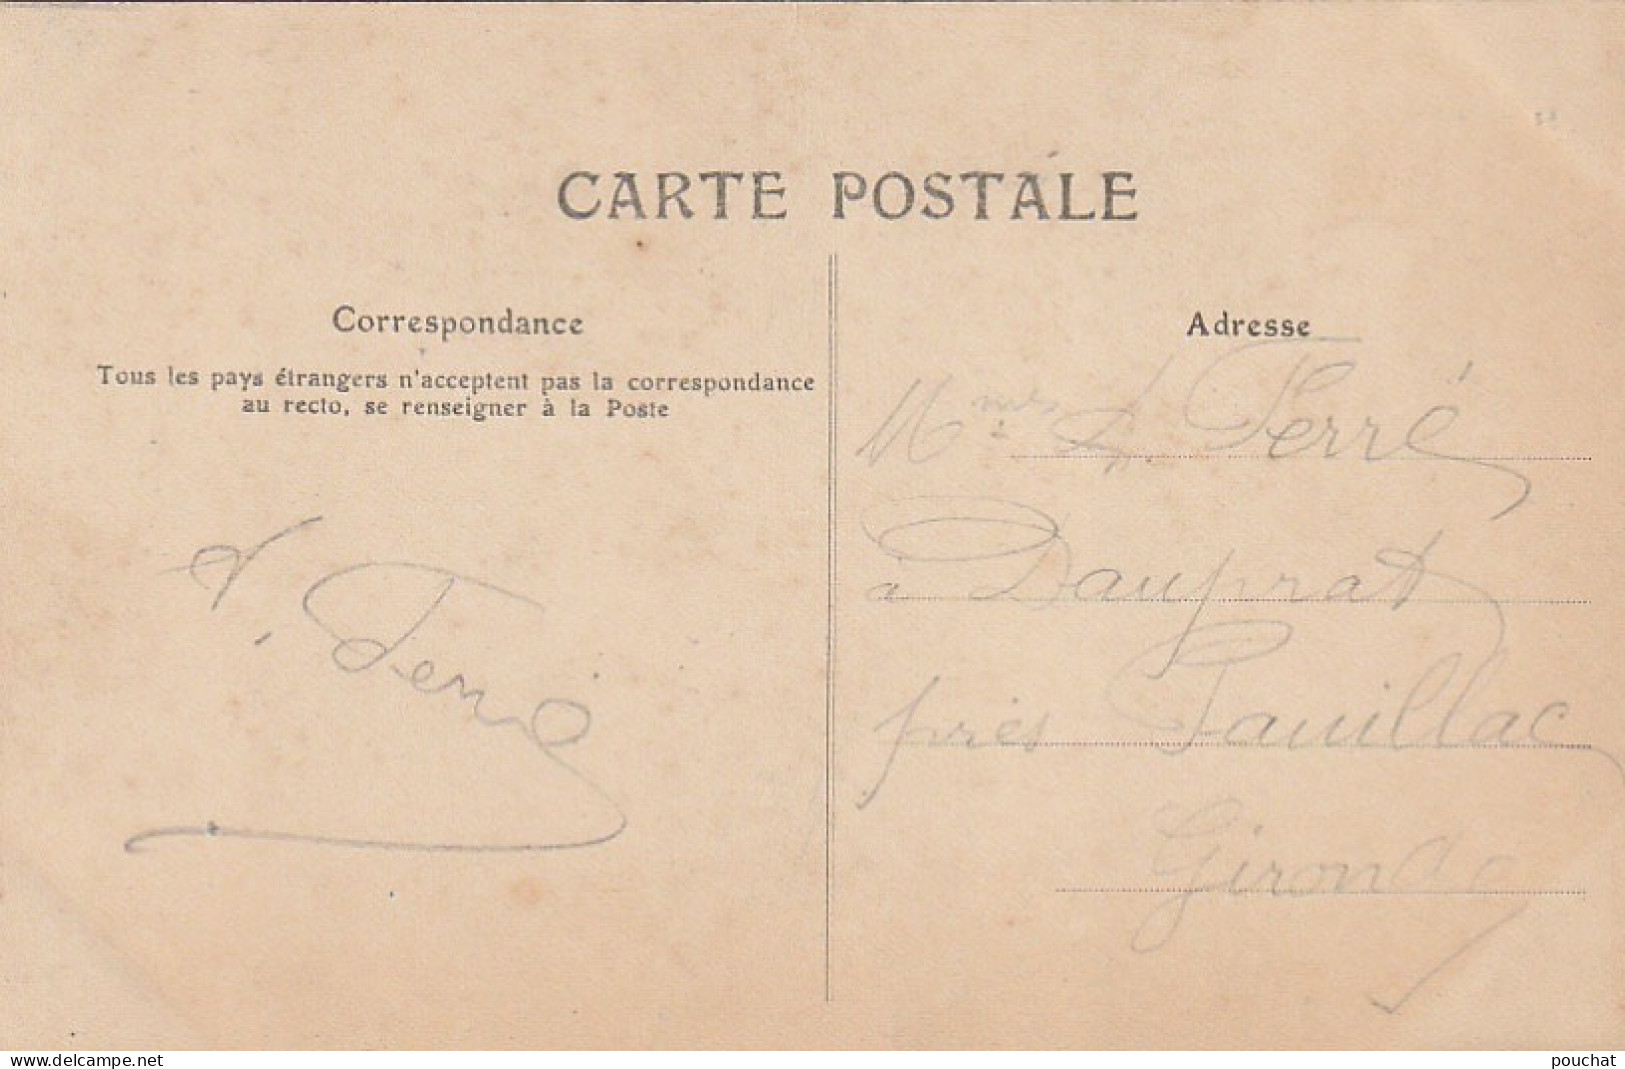 CARTE POSTALE
Correspondance
Tous les pays étrangers n'acceptent pas la correspondance
au recto, se renseigner à la Poste
Ferré
Adresse
A. Ferré
à Dauprat
près Pauillac
Gironde
www.delcampe.net
pouchat